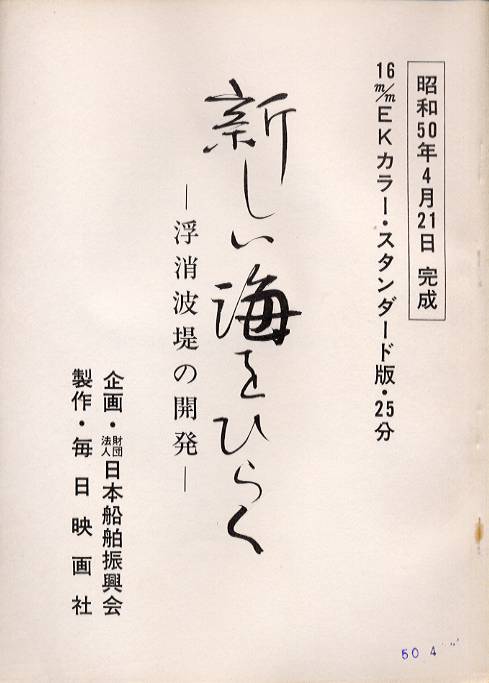 昭和50年4月21日 完成
16m/mEKカラー・スタンダード版・25分
新しい海をひらく
―浮消波堤の開発―
企画・財団法人日本船舶振興会
製作・毎日映画社
50 4